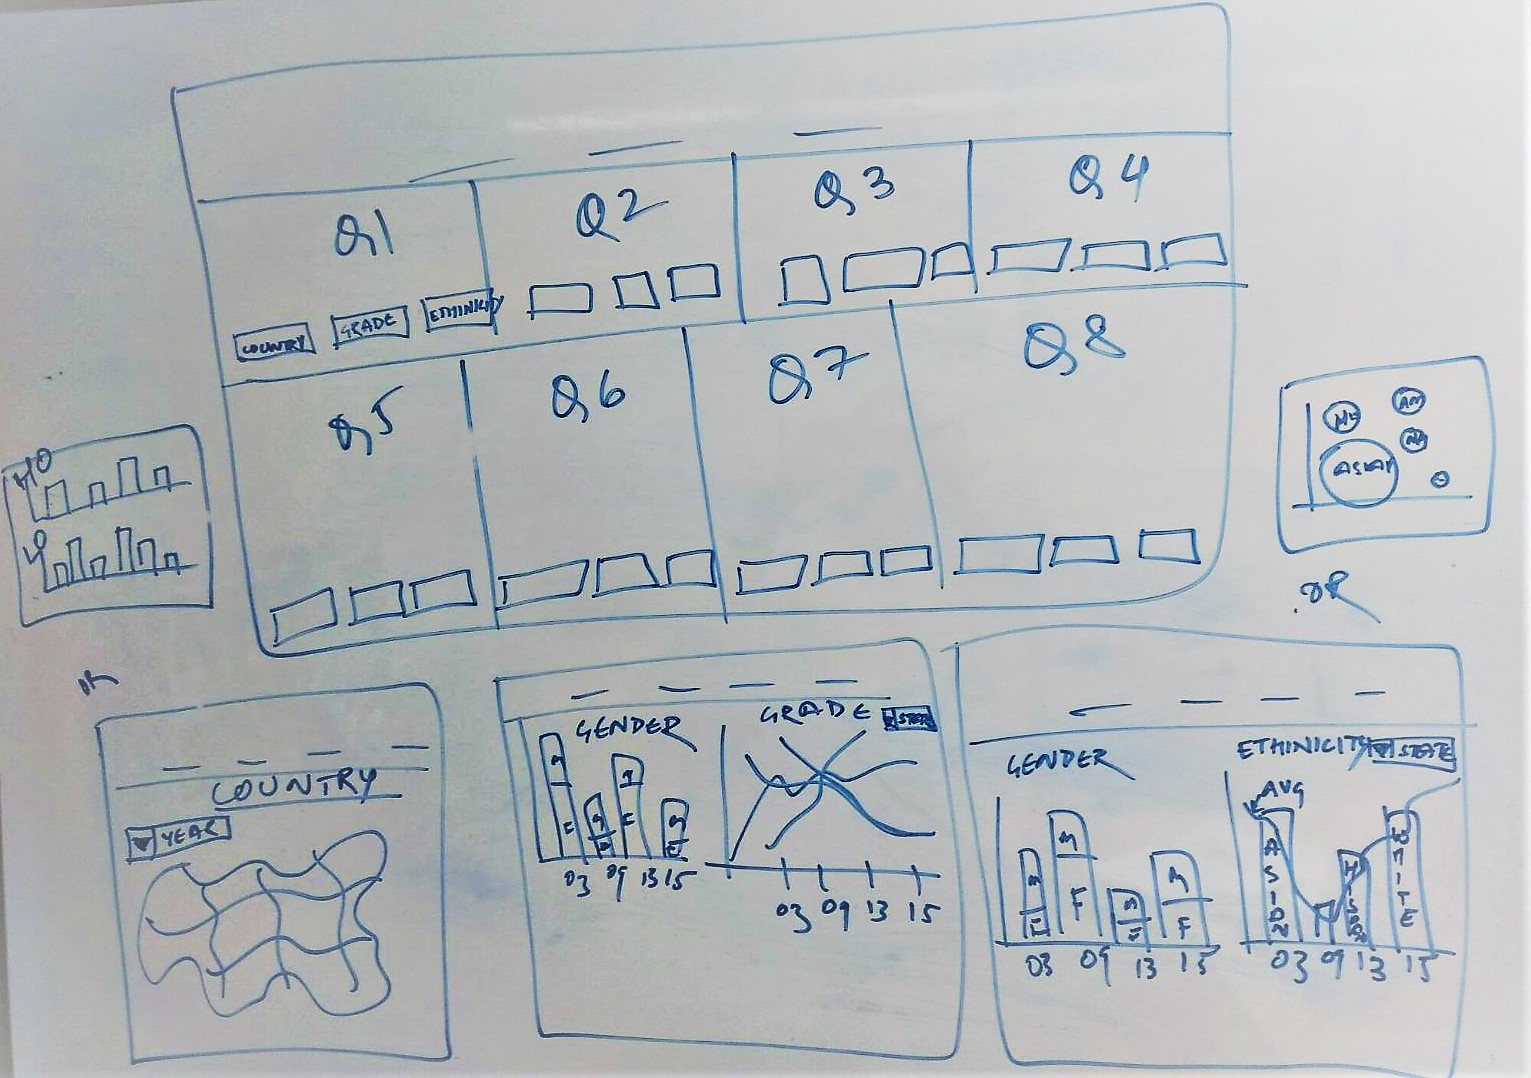 Q1
Q2
Q3
Q4
COUNTRY
GRADE
ETHINICITY
Q5
Q6
Q7
Q8
ASIAN
OR
COUNTRY
YEAR
GENDER
M
F
M
F
M
F
M
F
03 09 13 15
GRADE
STATE
03 09 13 15
GENDER
M
F
M
F
M
F
M
F
03 09 13 15
ETHINICITY
STATE
AVG
ASIAN
WHITE
03 09 13 15